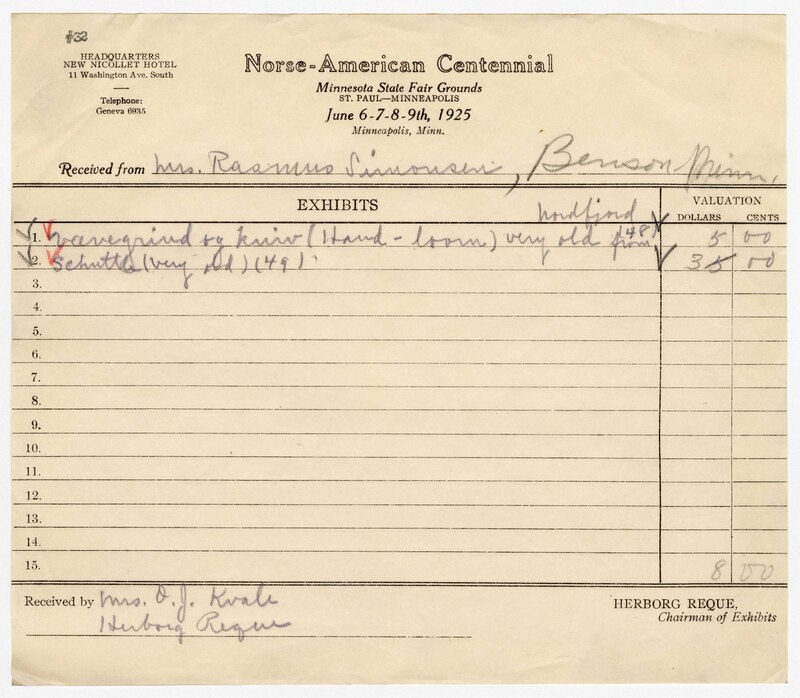 #32
HEADQUARTERS
NEW NICOLLET HOTEL
11 Washington Ave. South
Telephone:
Geneva 6935
Norse-American Centennial
Minnesota State Fair Grounds
ST. PAUL—MINNEAPOLIS
June 6-7-8-9th, 1925
Minneapolis, Minn.
Received from Mrs. Rasmus Simonsen, Benson Minn.
EXHIBITS
VALUATION
DOLLARS CENTS
Nordfjord
1. Vævegrind og kniv (Hand-loom) very old from (48) 5 00
2. Schuttle (very old) (49) 3 00
3.
4.
5.
6.
7.
8.
9.
10.
11.
12.
13.
14.
15. 8 00
Received by Mrs. O. J. Kvale
Herborg Reque
HERBORG REQUE,
Chairman of Exhibits